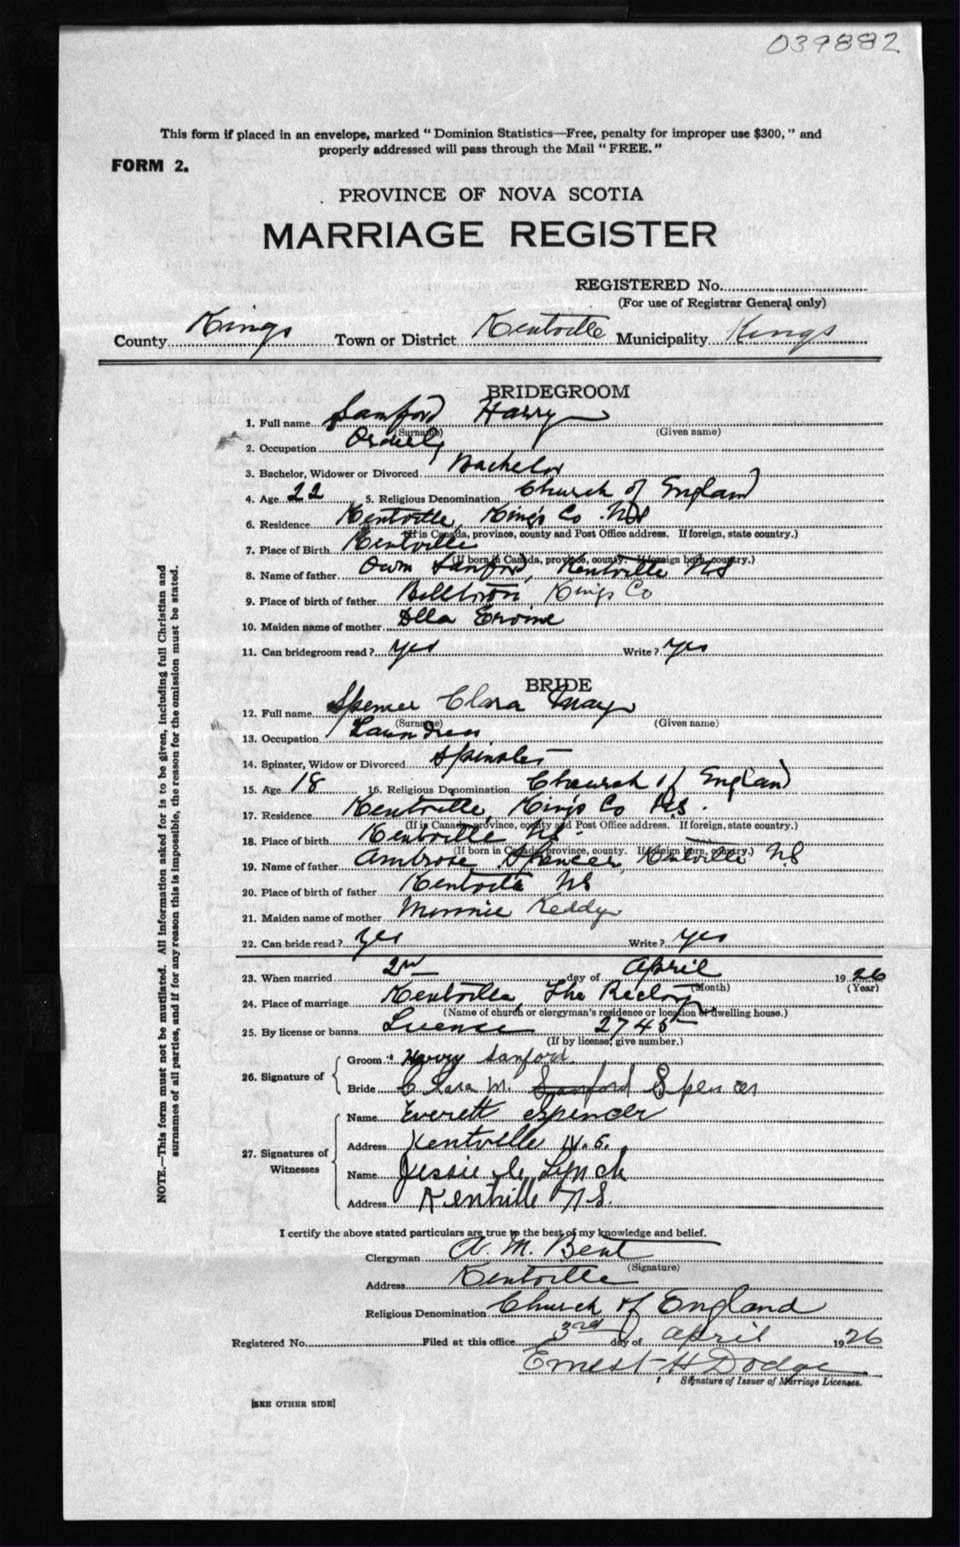 039882
This form if placed in an envelope, marked "Dominion Statistics—Free, penalty for improper use $300," and
properly addressed will pass through the Mail "FREE."
FORM 2.
PROVINCE OF NOVA SCOTIA
MARRIAGE REGISTER
REGISTERED No.
(For use of Registrar General only)
County Kings Town or District Kentville Municipality Kings
BRIDEGROOM
1. Full name Sanford Harry
(Surname) (Given name)
2. Occupation
3. Bachelor, Widower or Divorced Bachelor
4. Age 22 5. Religious Denomination Church of England
6. Residence Kentville, Kings Co. NS
(If in Canada, province, county and Post Office address. If foreign, state country.)
7. Place of Birth Kentville
(If born in Canada, province, county. If foreign born, country.)
8. Name of father Owen Sanford, Kentville NS
9. Place of birth of father Billtown Kings Co
10. Maiden name of mother Ella
11. Can bridegroom read? yes Write? yes
BRIDE
12. Full name Spencer Clara May
(Surname) (Given name)
13. Occupation Laundress
14. Spinster, Widow or Divorced Spinster
15. Age 18 16. Religious Denomination Church of England
17. Residence Kentville, Kings Co N.S.
(If in Canada, province, county and Post Office address. If foreign, state country.)
18. Place of birth Kentville NS
(If born in Canada, province, county. If foreign born, country.)
19. Name of father Ambrose Spencer, Kentville NS
20. Place of birth of father Kentville NS
21. Maiden name of mother Minnie Keddy
22. Can bride read? yes Write? yes
23. When married 2nd day of April 1926
(Month) (Year)
24. Place of marriage Kentville, The Rectory
(Name of church or clergyman's residence or location of dwelling house.)
25. By license or banns License 2745
(If by license, give number.)
26. Signature of Groom Harry Sanford
Bride Clara M. Sanford Spencer
27. Signatures of Witnesses
Name Everett Spencer
Address Kentville N.S.
Name Jessie Lynch
Address Kentville N.S.
I certify the above stated particulars are true to the best of my knowledge and belief.
Clergyman A. M. Bent
(Signature)
Address Kentville
Religious Denomination Church of England
Registered No. Filed at this office 3rd day of April 1926
Ernest H Dodge
Signature of Issuer of Marriage Licenses.
[SEE OTHER SIDE]
NOTE.—This form must not be mutilated. All information asked for is to be given, including full Christian and
surnames of all parties, and if for any reason this is impossible, the reason for the omission must be stated.